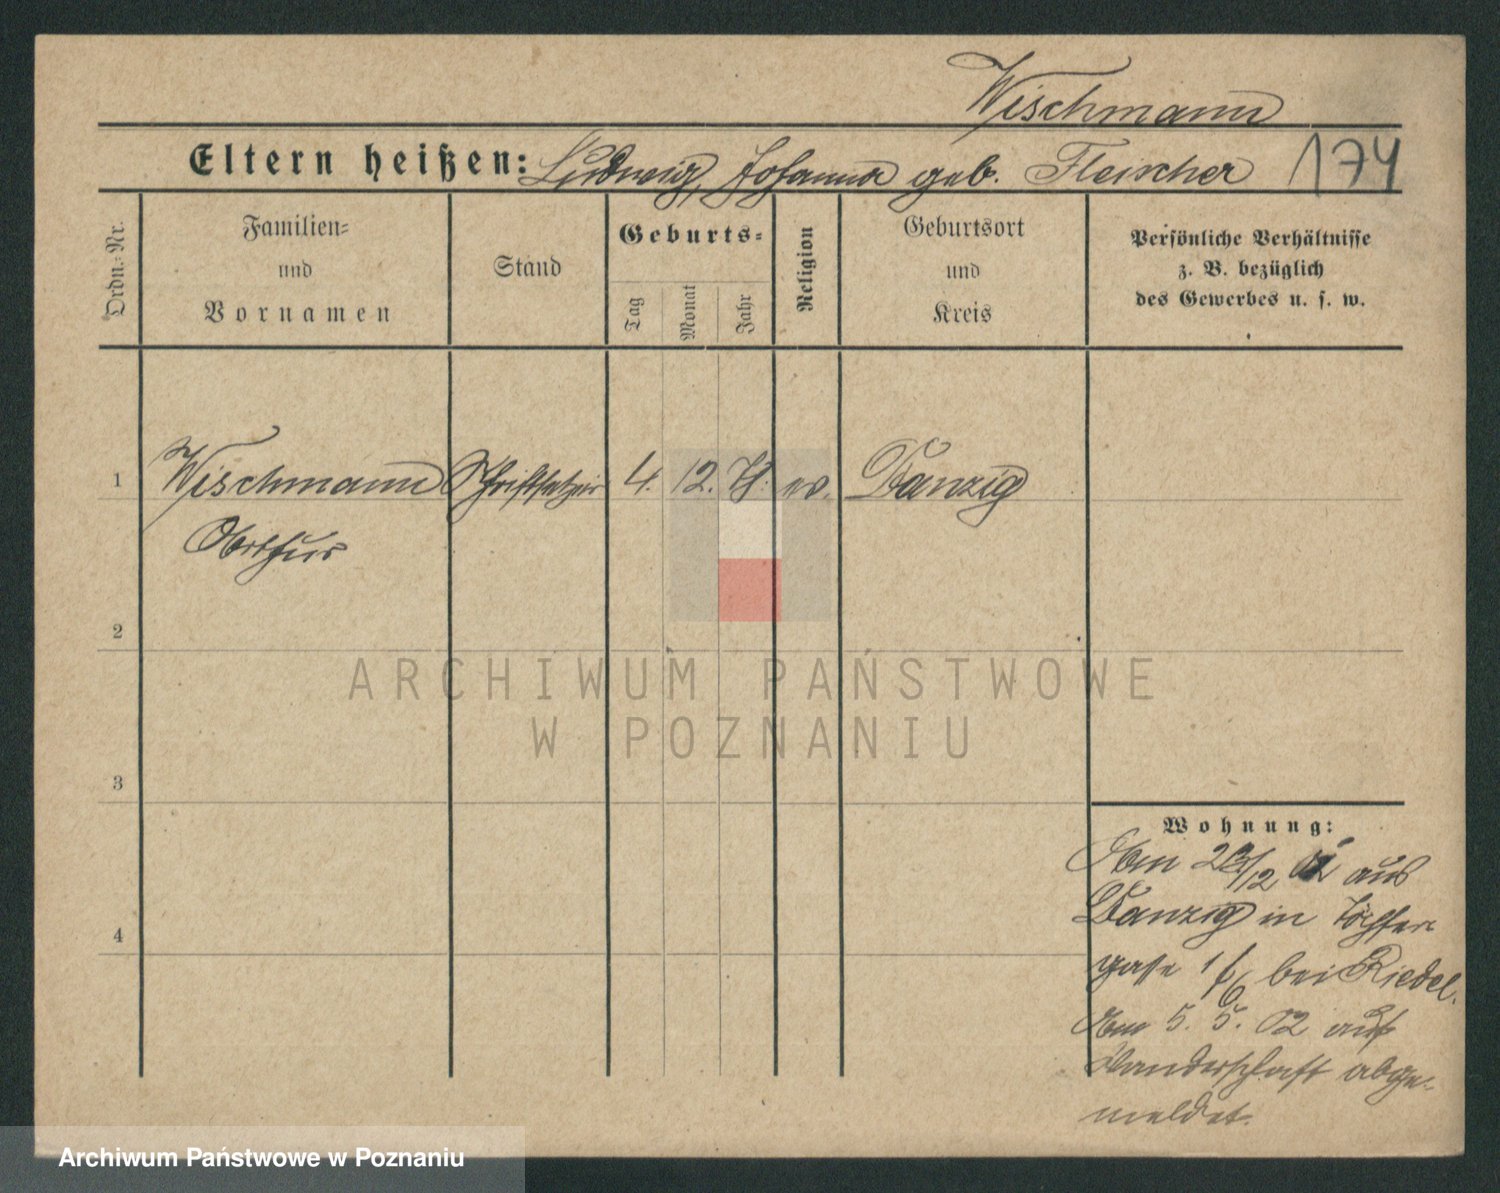 Wischmann
Eltern heißen: Ludwig, Johanna geb. Fleischer 174
Ordn.-Nr.
Familien-
und
Vornamen
Stand
Geburts-
Tag
Monat
Jahr
Religion
Geburtsort
und
Kreis
Persönliche Verhältnisse
z. B. bezüglich
des Gewerbes u. s. w.
1 Wischmann Schriftsetzer 4. 12. ev. Danzig
Arthur
2
3
4
ARCHIWUM PAŃSTWOWE
W POZNANIU
Wohnung:
Am 23/12 aus
Danzig in
gasse bei Riedel.
Am 5. 5. 02 auf
Wanderschaft abge-
meldet.
Archiwum Państwowe w Poznaniu